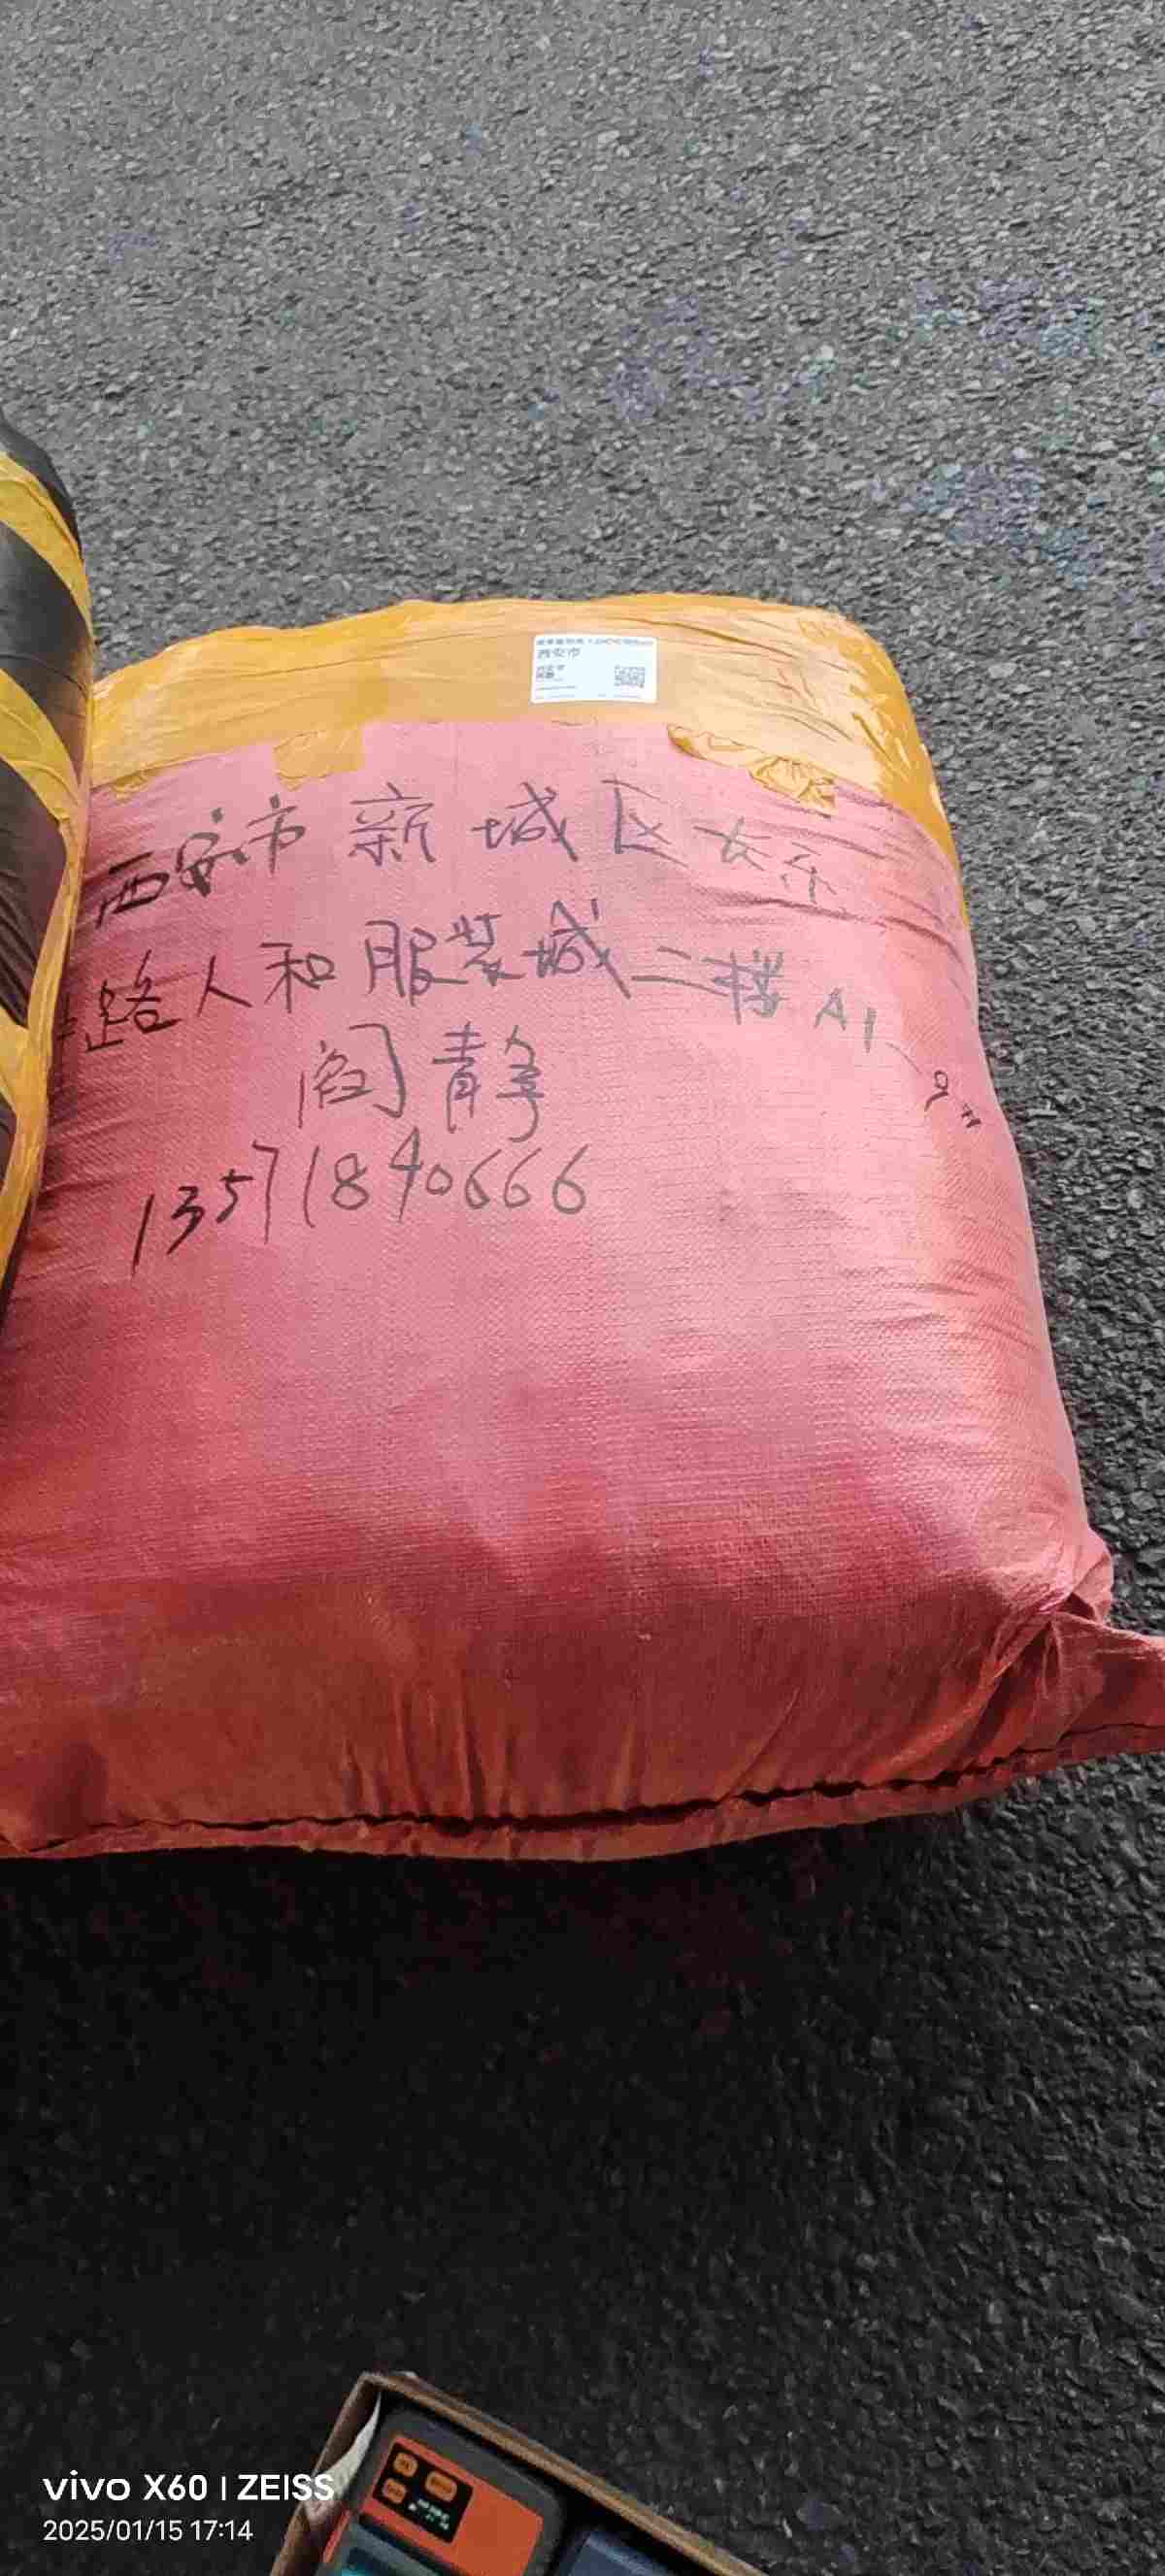 西安市
西安市
西安市新城区长乐
路人和服装城二楼A1-9#
阎静
13571840666
vivo X60 | ZEISS
2025/01/15 17:14